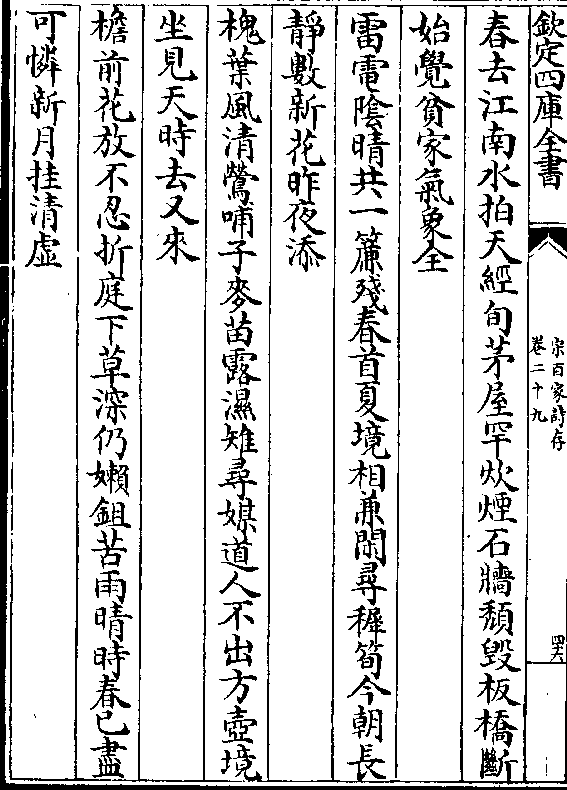 欽定四庫全書
宋百家詩存
卷二十九
四六
春去江南水拍天經旬茅屋罕炊煙石牆頽毀板橋斷
始覺貧家氣象全
雷電陰晴共一簾殘春首夏境相兼閑尋穉筍今朝長
靜數新花昨夜添
槐葉風清鶯哺子麥苗露濕雉尋媒道人不出方壺境
坐見天時去又來
檐前花放不忍折庭下草深仍嬾鉏苦雨晴時春已盡
可憐新月挂清虛